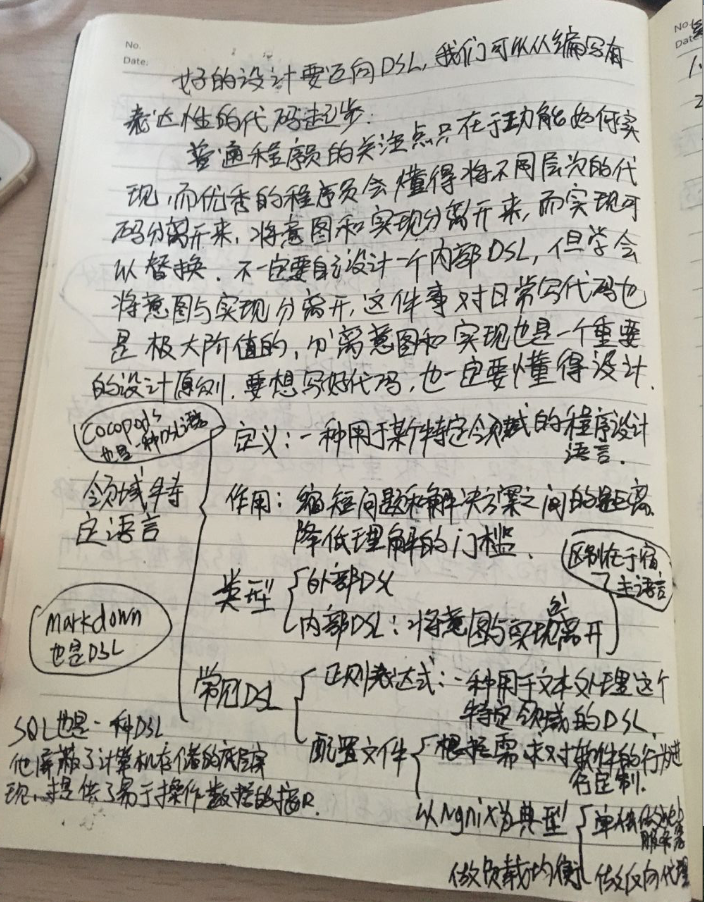 No.
Date:
好的设计要迈向DSL,我们可以从编写有
表达性的代码起步.
普通程序员的关注点只在于功能如何实
现,而优秀的程序员会懂得将不同层次的代
码分离开来,将意图和实现分离开来,而实现可
以替换. 不一定要自己设计一个内部DSL,但学会
将意图与实现分离开,这件事对日常写代码也
是极大价值的,分离意图和实现也是一个重要
的设计原则.要想写好代码,也一定要懂得设计.
Cocopods
也是一种DSL语言
领域特
定语言
定义:一种用于某个特定领域的程序设计
语言.
作用:缩短问题和解决方案之间的距离,
降低理解的门槛.
类型
外部DSL
内部DSL:将意图与实现分离开
区别在于宿
主语言
markdown
也是DSL
常见DSL
正则表达式:一种用于文本处理这个
特定领域的DSL.
配置文件
根据需求对软件的行为进
行定制.
以Ngnix为典型
单体做
服务器
做反向代理
做负载均衡
SQL也是一种DSL
他屏蔽了计算机存储的底层实
现,提供了易于操作数据的接口.
No.
Date
1.
2